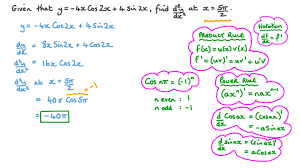 Given that y = -4x Cos2x + 4 Sin2x, find d²y/dx² at x = 5π/2
y = -4x Cos2x + 4 Sin2x
dy/dx = 8x Sin2x + 4 Cos2x
d²y/dx² = 16x Cos2x
d²y/dx² at x = 5π/2
= 40π Cos5π = -1
= -40π
Cos nπ = (-1)ⁿ
n even : 1
n odd : -1
Notation
df/dx = f'
PRODUCT RULE
f(x) = u(x) v(x)
f' = (uv)' = uv' + u'v
POWER RULE
(axⁿ)' = naxⁿ⁻¹
d/dx Cosax = (Cosax)'
= -aSinax
d/dx Sinax = (Sinax)'
= aCosax